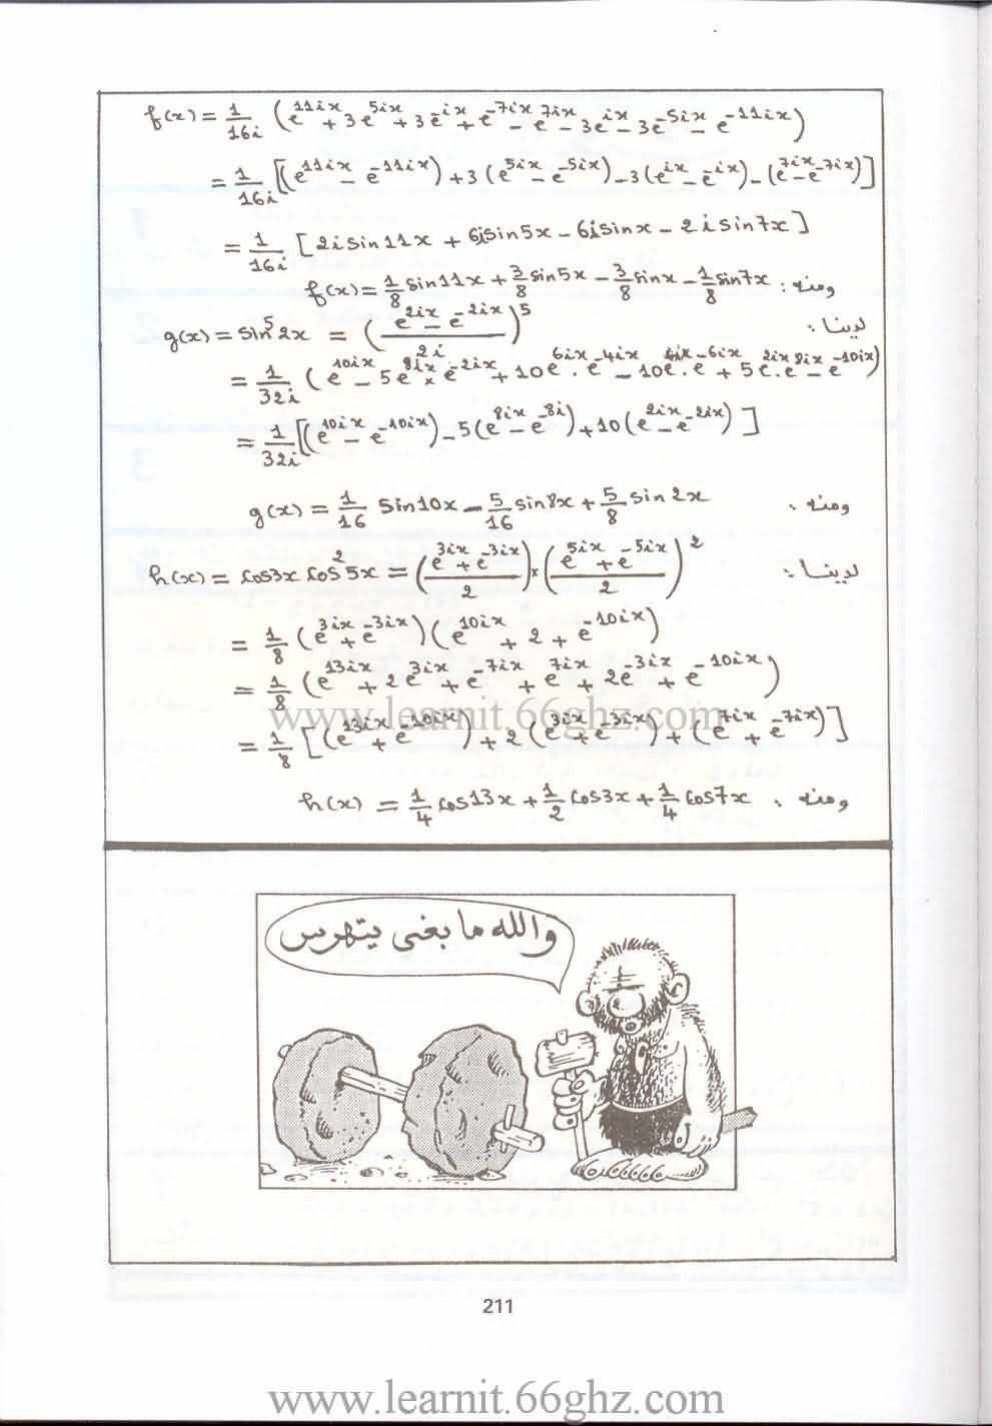 f(x) = 1/16i (e^11ix + 3e^5ix + 3e^-ix + e^-7ix - e^7ix - 3e^ix - 3e^-5ix - e^-11ix)
= 1/16i [(e^11ix - e^-11ix) + 3(e^5ix - e^-5ix) - 3(e^ix - e^-ix) - (e^7ix - e^-7ix)]
= 1/16i [2i sin11x + 6i sin5x - 6i sinx - 2i sin7x]
ومنه : f(x) = 1/8 sin11x + 3/8 sin5x - 3/8 sinx - 1/8 sin7x
لدينا : g(x) = sin^5 2x = ((e^2ix - e^-2ix)/2i)^5
= 1/32i (e^10ix - 5e^8ix × e^-2ix + 10e^6ix . e^-4ix - 10e^4ix . e^-6ix + 5e^2ix . e^-8ix - e^-10ix)
= 1/32i [(e^10ix - e^-10ix) - 5(e^8ix - e^-8i) + 10(e^2ix - e^-2ix)]
ومنه : g(x) = 1/16 sin10x - 5/16 sin8x + 5/8 sin2x
لدينا : h(x) = cos3x cos^2 5x = ((e^3ix + e^-3ix)/2) × ((e^5ix + e^-5ix)/2)^2
= 1/8 (e^3ix + e^-3ix)(e^10ix + 2 + e^-10ix)
= 1/8 (e^13ix + 2e^3ix + e^-7ix + e^7ix + 2e^-3ix + e^-10ix)
= 1/8 [(e^13ix + e^-10ix) + 2(e^3ix + e^-3ix) + (e^7ix + e^-7ix)]
ومنه : h(x) = 1/4 cos13x + 1/2 cos3x + 1/4 cos7x
www.learnit.66ghz.com
والله ما بغى يتهرس
211
www.learnit.66ghz.com